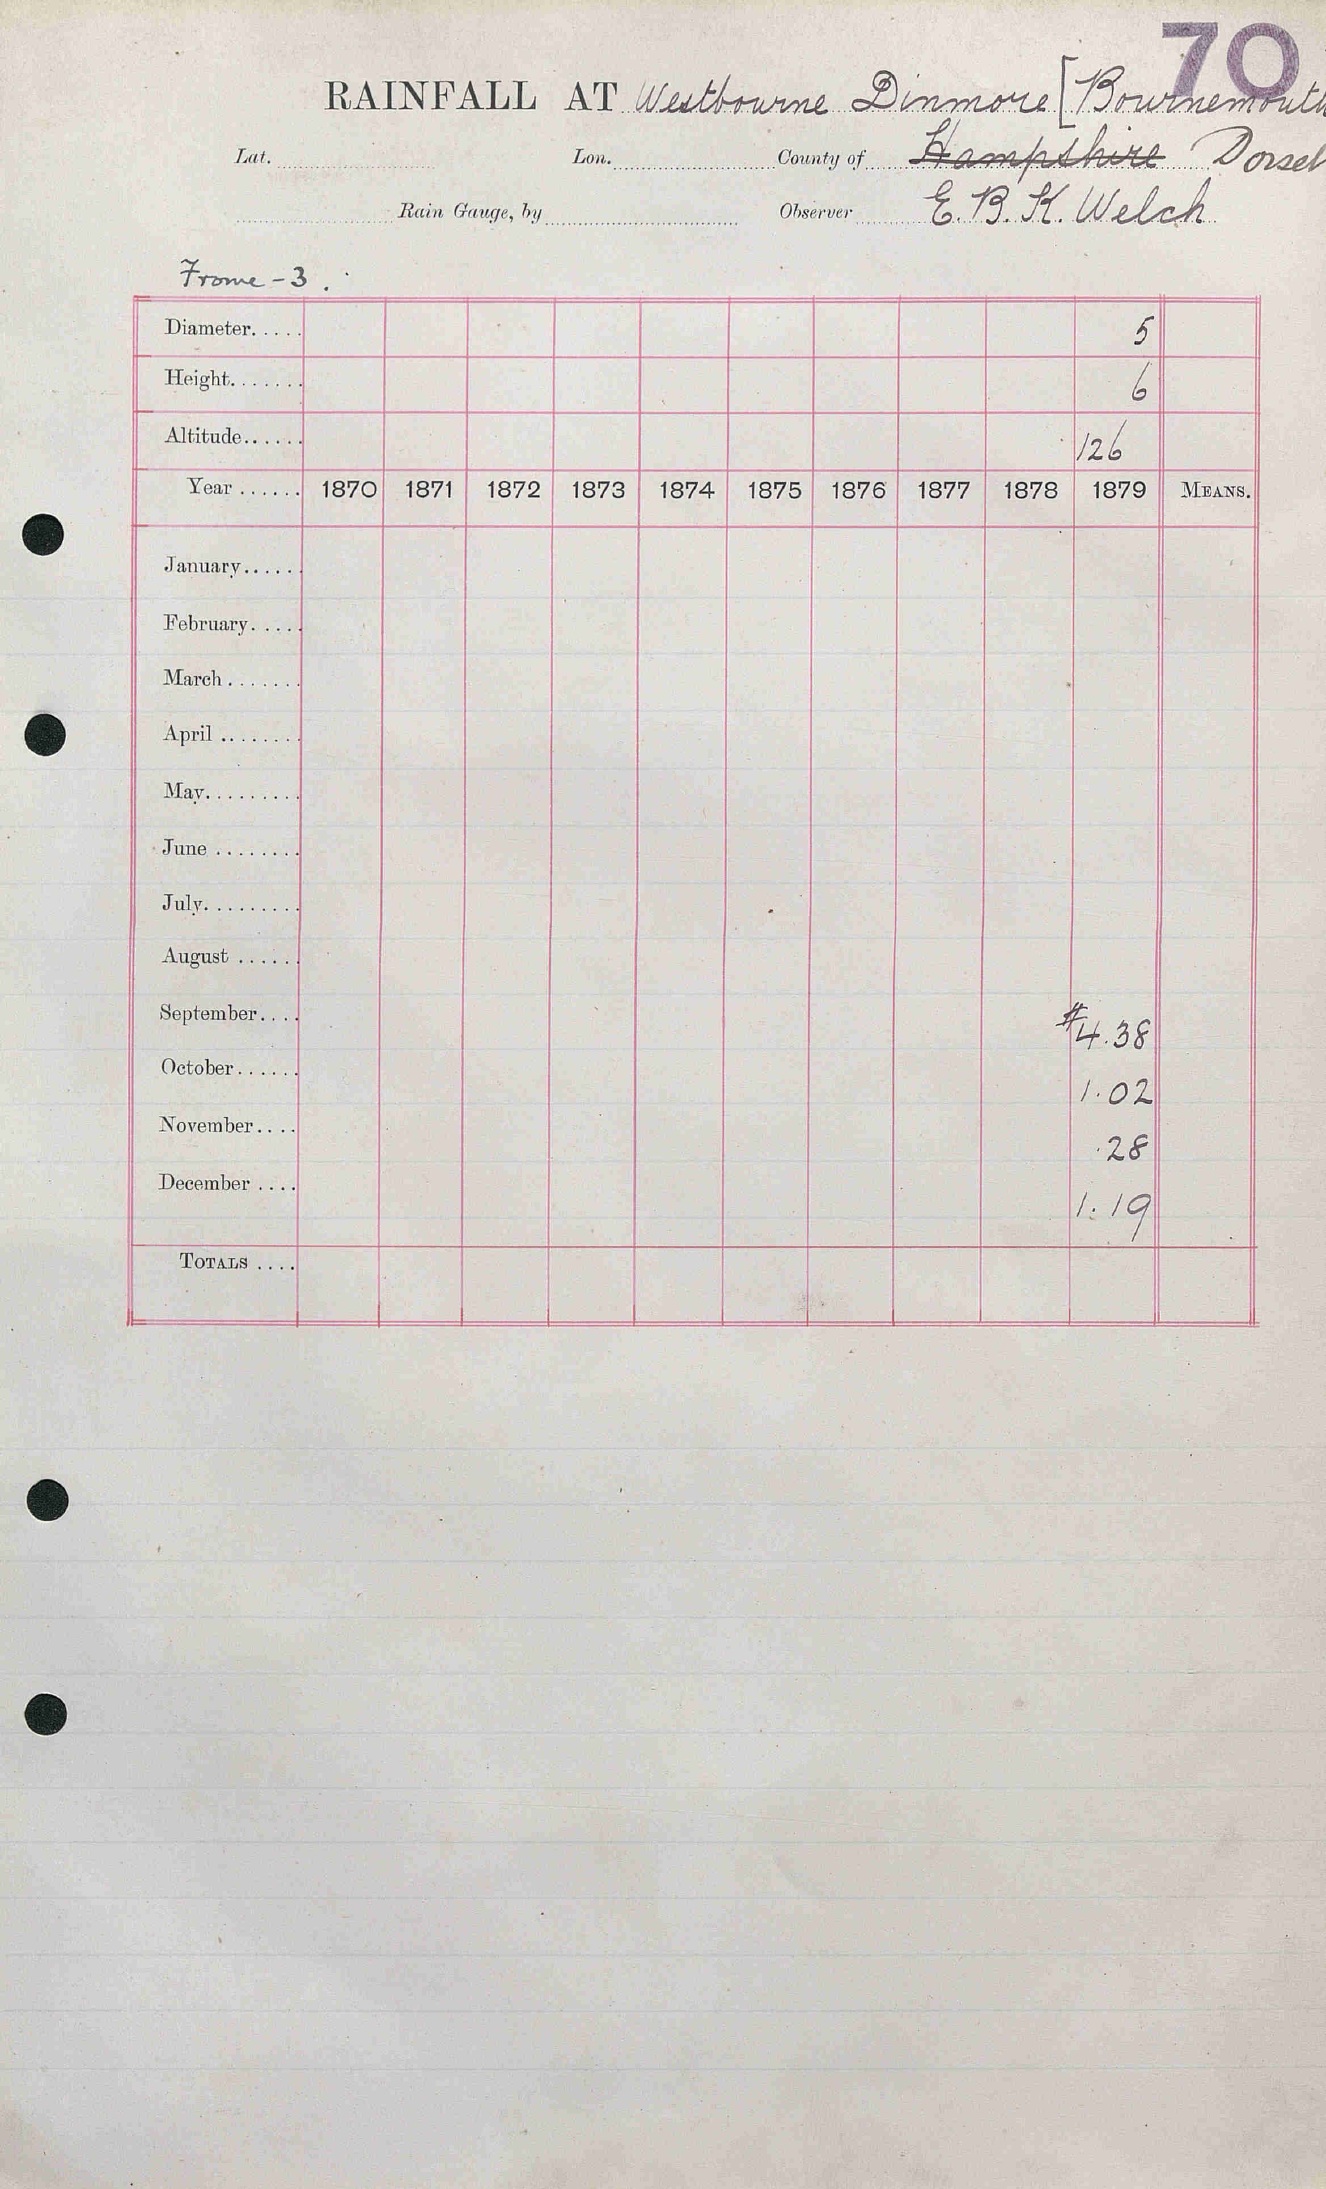 70
RAINFALL AT Westbourne Dinmore [Bournemouth
Lat. Lon. County of Hampshire Dorset
Rain Gauge, by Observer E. B. K. Welch
Frome - 3.
Diameter..... 5
Height....... 6
Altitude...... 126
Year ...... 1870 1871 1872 1873 1874 1875 1876 1877 1878 1879 MEANS.
January.....
February.....
March.......
April ........
May.........
June ........
July.........
August ......
September.... #4.38
October...... 1.02
November.... .28
December .... 1.19
TOTALS ....